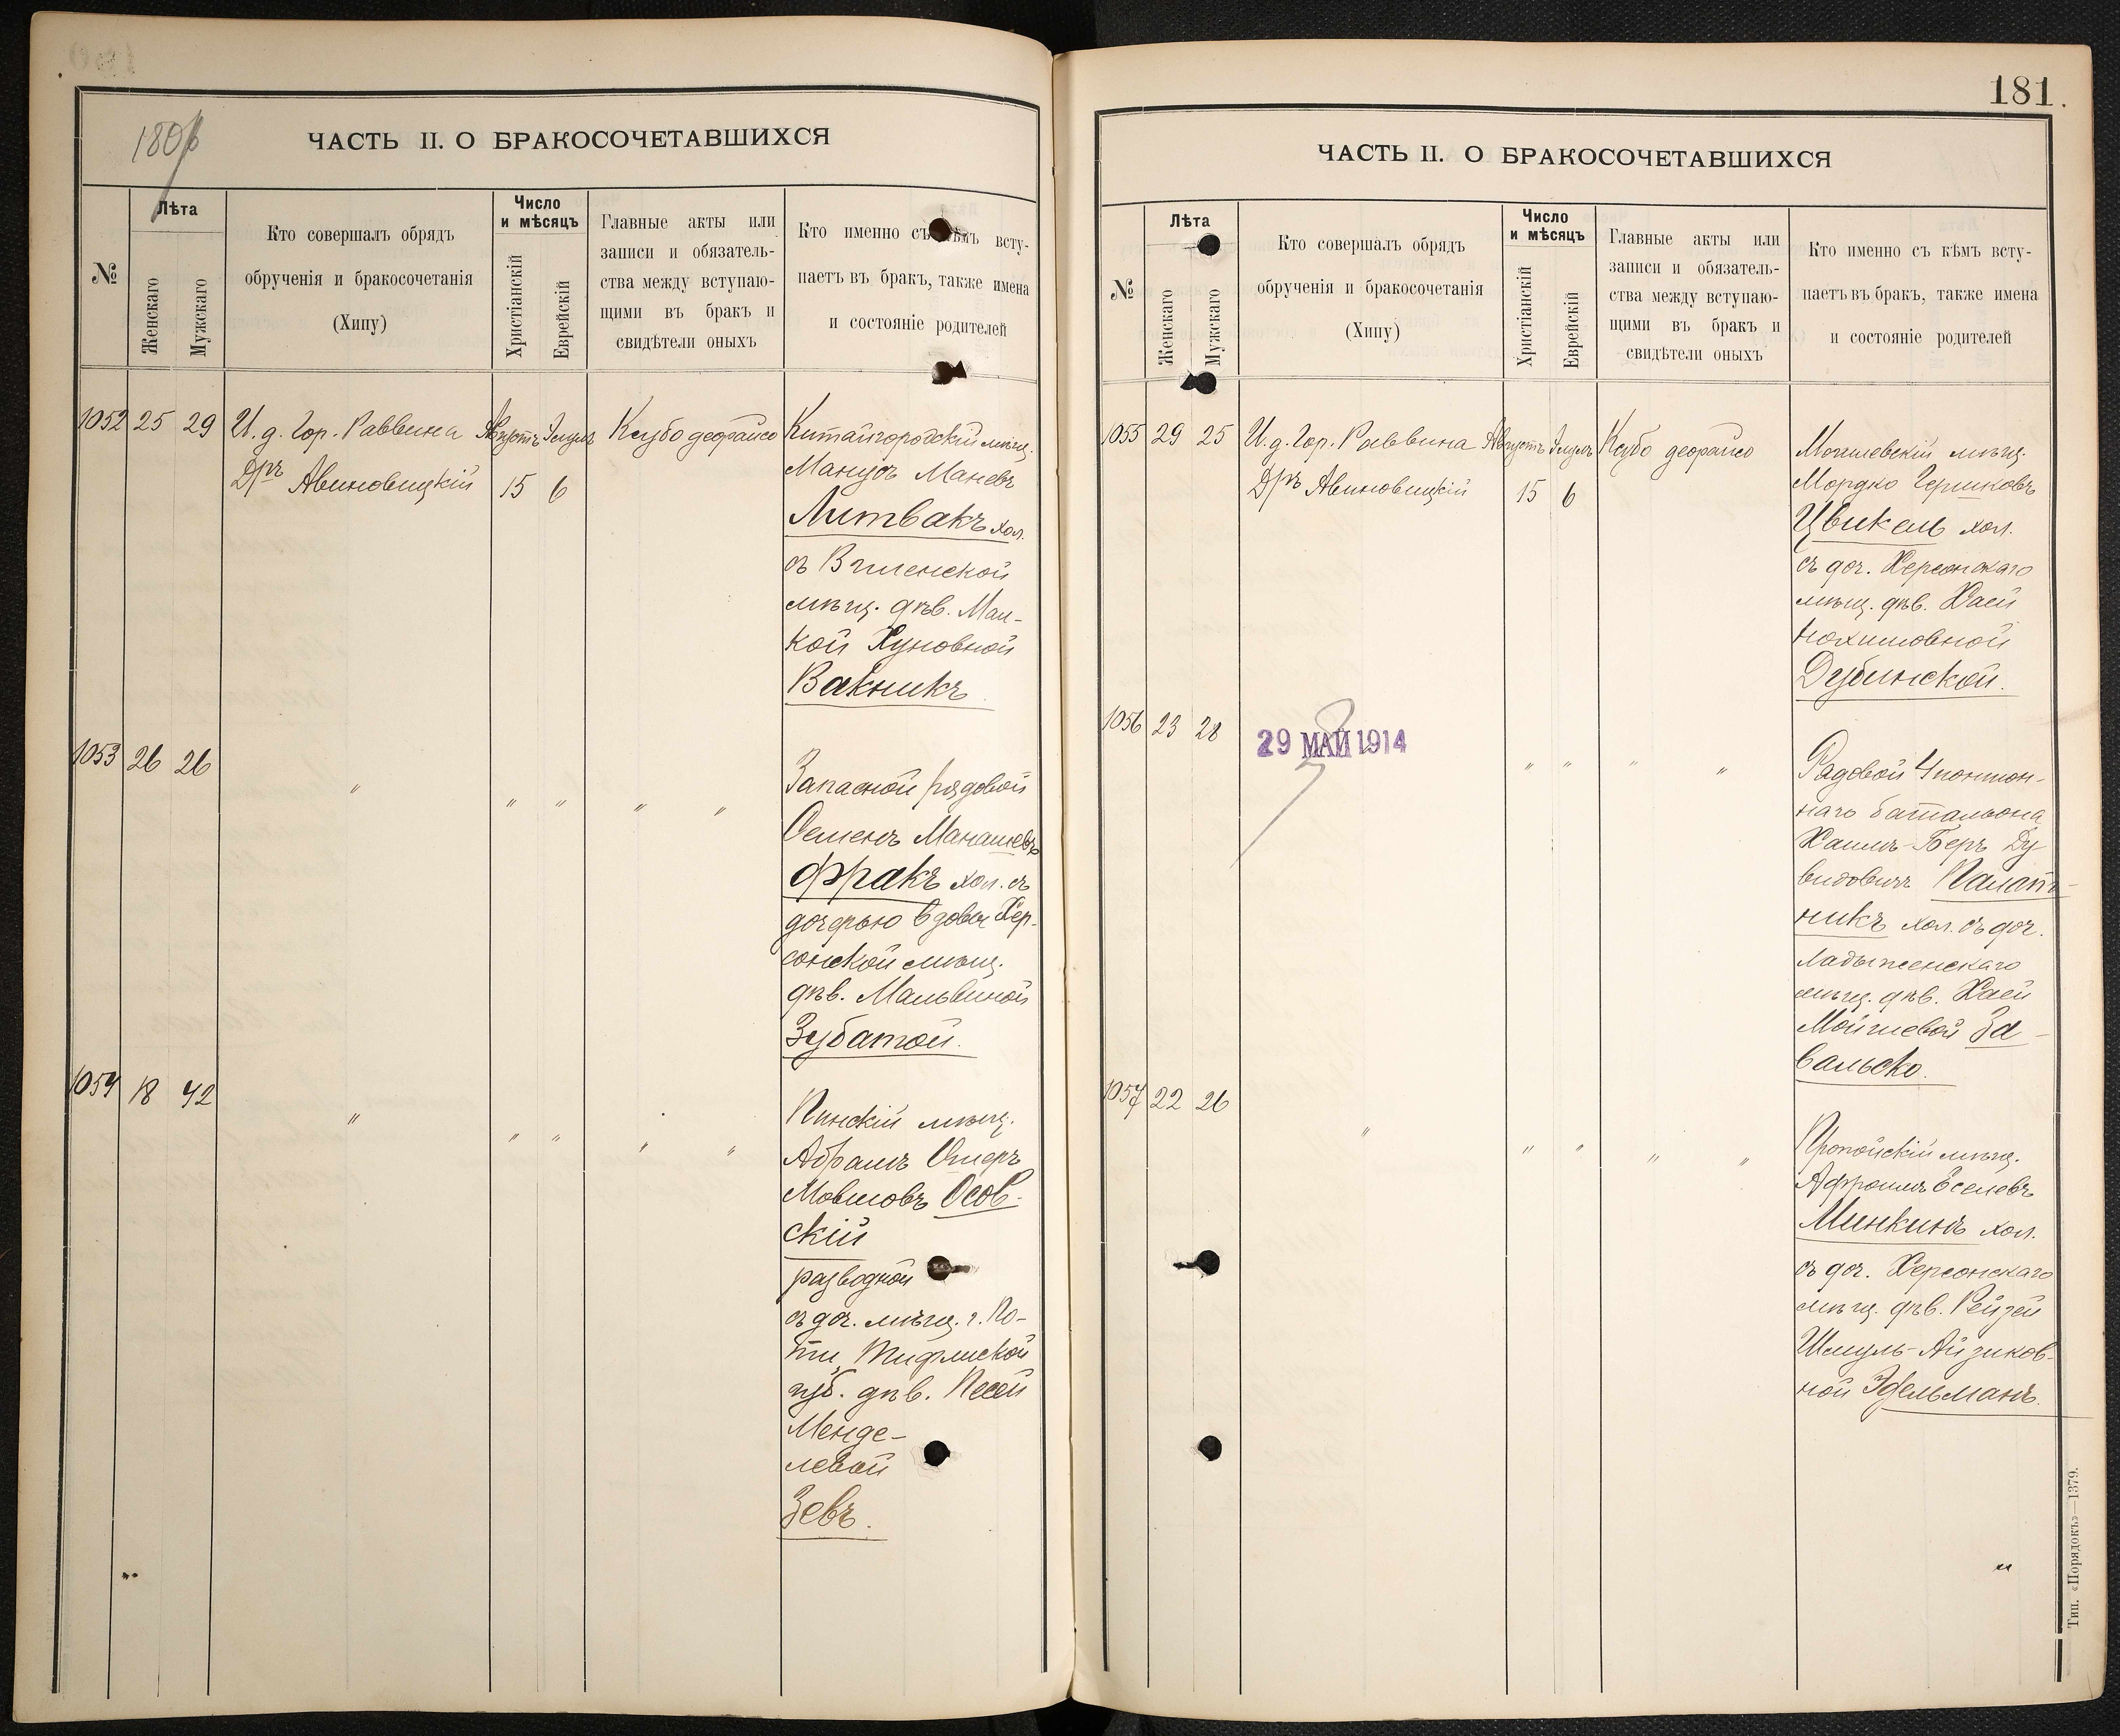 180
ЧАСТЬ II. О БРАКОСОЧЕТАВШИХСЯ
№
Лѣта
Женскаго
Мужскаго
Кто совершалъ обрядъ
обрученія и бракосочетанія
(Хипу)
Число
и мѣсяцъ
Христіанскій
Еврейскій
Главные акты или
записи и обязатель-
ства между вступаю-
щими въ бракъ и
свидѣтели оныхъ
Кто именно съ кѣмъ всту-
паетъ въ бракъ, также имена
и состояніе родителей
1052 25 29 И. д. Гор. Раввина Августъ Элулъ Ксубо деорайсо
Дръ Авиновицкій 15 6
Китайгородскій мѣщ.
Манусъ Маневъ
Литвакъ хол.
съ Виленской
мѣщ. дѣв. Мал-
кой Хуновной
Вакникъ.
1053 26 26 " " " " "
Запасной рядовой
Семенъ Манашевъ
Фракъ хол. съ
дочерью вдовы Хер-
сонской мѣщ.
дѣв. Мальвиной
Зубатой.
1054 18 42 " " " " "
Пинскій мѣщ.
Абрамъ Ошеръ
Мовшовъ Осов-
скій
разводной
съ доч. мѣщ. г. По-
ти, Тифлиской
губ. дѣв. Песей
Менде-
левой
Зевъ.
181.
ЧАСТЬ II. О БРАКОСОЧЕТАВШИХСЯ
№
Лѣта
Женскаго
Мужскаго
Кто совершалъ обрядъ
обрученія и бракосочетанія
(Хипу)
Число
и мѣсяцъ
Христіанскій
Еврейскій
Главные акты или
записи и обязатель-
ства между вступаю-
щими въ бракъ и
свидѣтели оныхъ
Кто именно съ кѣмъ всту-
паетъ въ бракъ, также имена
и состояніе родителей
1055 29 25 И. д. Гор. Раввина Августъ Элулъ Ксубо деорайсо
Дръ Авиновицкій 15 6
Могилевскій мѣщ.
Мордко Гершковъ
Цвикель хол.
съ доч. Херсонскаго
мѣщ. дѣв. Хаей
Нохимовной
Дубинской.
1056 23 28
29 МАЙ 1914
" " " "
Рядовой 4 понтон-
наго баталіона
Хаимъ-Беръ Ду-
видовичъ Палат-
никъ хол. съ доч.
Ладыженскаго
мѣщ. дѣв. Хаей
Мойшевой За-
вальско.
1057 22 26 " " " " "
Пропойскій мѣщ.
Афроимъ Еселевъ
Минкинъ хол.
съ доч. Херсонскаго
мѣщ. дѣв. Рейзей
Шмуль-Айзиков-
ной Эдельманъ.
Тип. «Порядокъ»—1379.